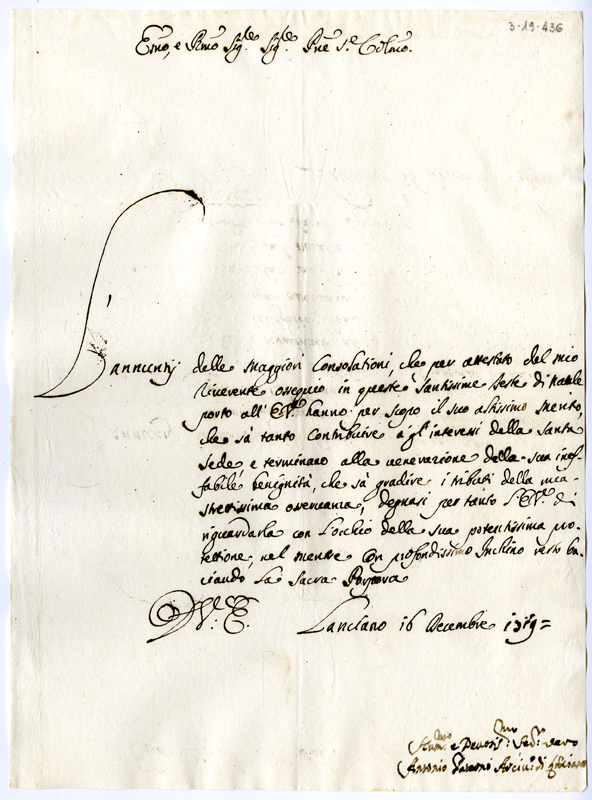 3-19-436
Em̃o, e Rm̃o Sig.re Sig.re Pñe S.e Colm̃o.
L'annuntij delle maggiori Consolationi, che per attestato del mio
riverente ossequio in queste Santissime feste di Natale
porto all'E.V. hanno per scopo il suo altissimo merito,
che sà tanto Contribuire à gl'interessi della Santa
Sede, e terminano alla veneratione della sua inef-
fabile benignità, che sà gradire i tributi della mia
osservanza, degnasi per tanto l'E.V. di
riguardarla con l'occhio della sua potentissima pro-
tettione, nel mentre Con profondissimo Inchino resto ba-
ciando La Sacra Porpora
D. V. E. Lanciano 16 Decembre 1719=
Hum.mo e Devotis.mo Ser.re vero
Antonio Arciv.o di Lanciano